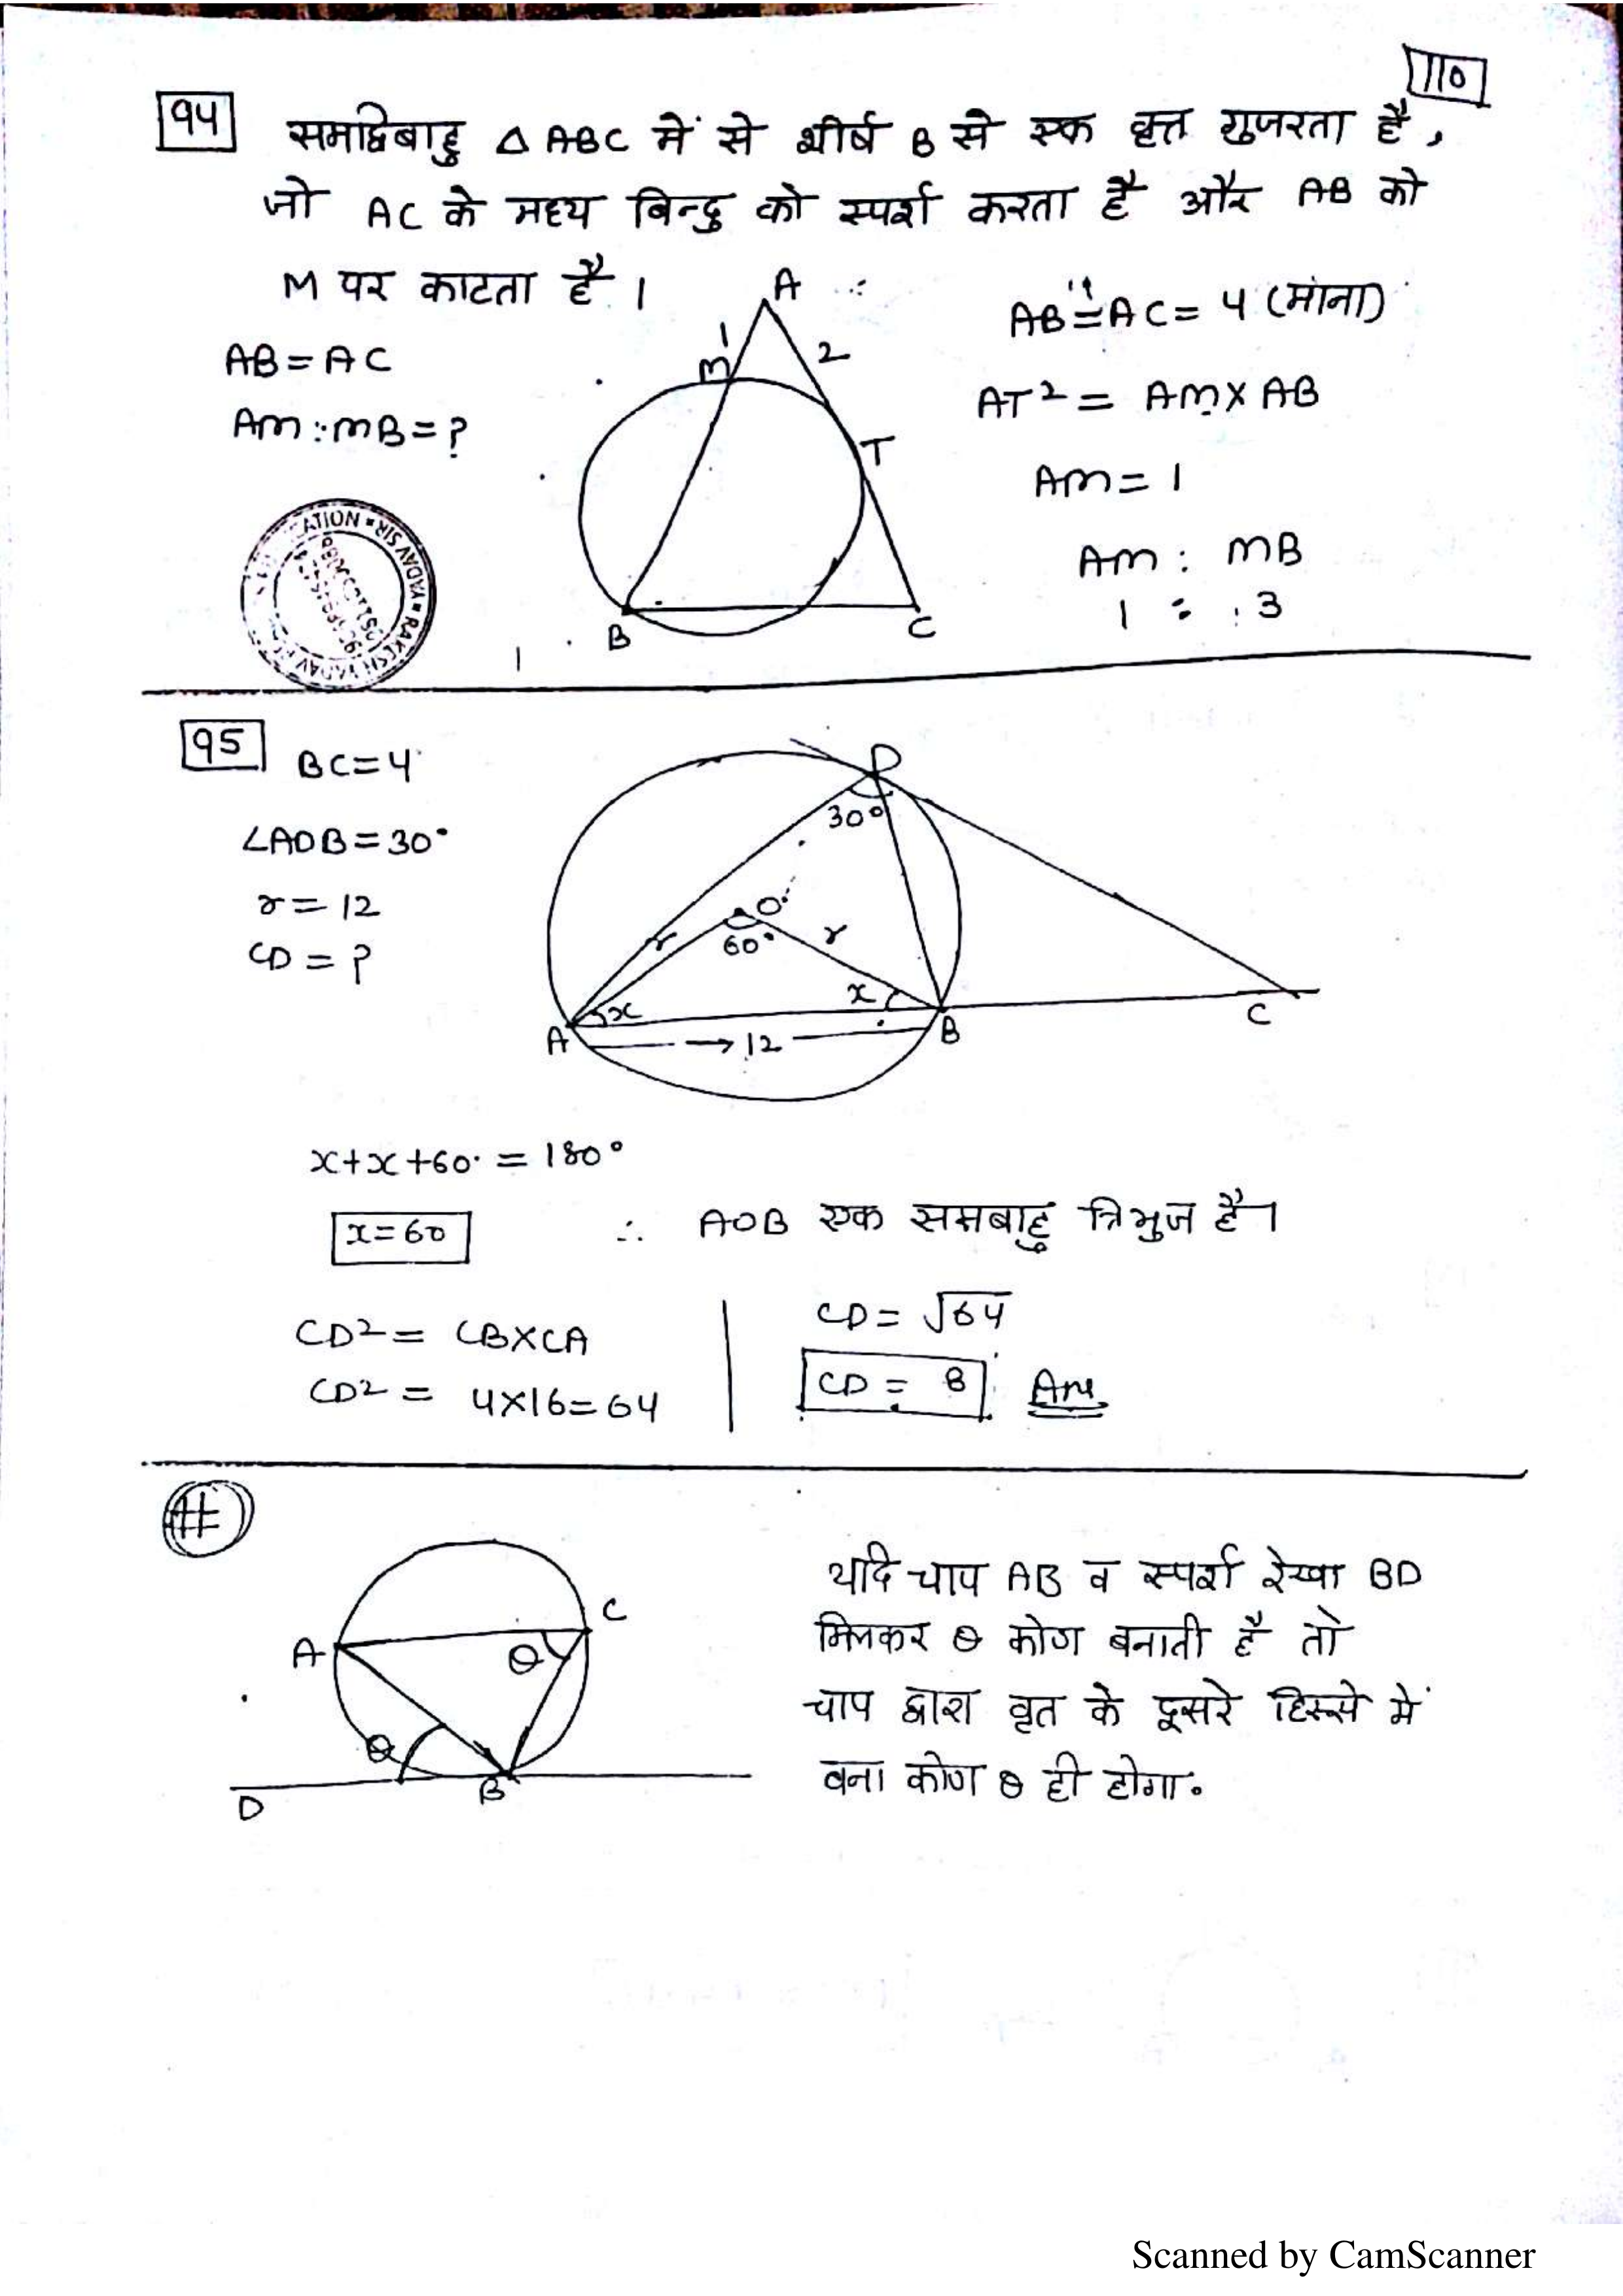 110
94 समद्विबाहु △ ABC में से शीर्ष B से एक वृत्त गुजरता है,
जो AC के मध्य बिन्दु को स्पर्श करता है और AB को
M पर काटता है।
AB = AC
AM : MB = ?
A
1
M
2
T
B
C
AB = AC = 4 (माना)
AT² = AM × AB
AM = 1
AM : MB
1 : 3
YADAV SIR RAKESH YADAV
95 BC = 4
∠ADB = 30°
r = 12
CD = ?
D
30°
O
60°
r
r
x
x
A
→ 12
B
C
x + x + 60° = 180°
x = 60
∴ AOB एक समबाहु त्रिभुज है।
CD² = CB × CA
CD² = 4 × 16 = 64
CD = √64
CD = 8 Ans
#
A
C
θ
θ
D
B
यदि चाप AB व स्पर्श रेखा BD
मिलकर θ कोण बनाती है तो
चाप द्वारा वृत के दूसरे हिस्से में
बना कोण θ ही होगा.
Scanned by CamScanner